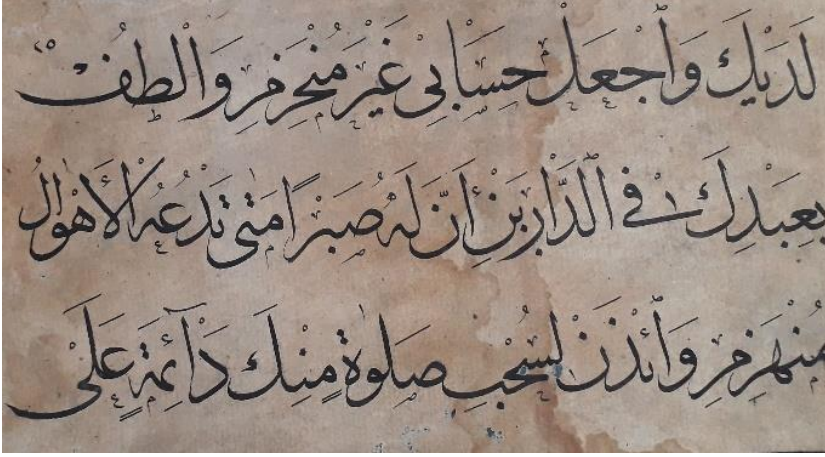 لَدَيْكَ وَاجْعَلْ حِسَابِيْ غَيْرَ مُنْخَرِمِ وَالْطُفْ
بِعَبْدِكَ فِي الدَّارَيْنِ أَنَّ لَهُ صَبْرًا مَتٰى تَدْعُهُ الْأَهْوَالُ
مُنْهَزِمِ وَائْذَنْ لِسُحْبِ صَلٰوةٍ مِنْكَ دَائِمَةٍ عَلَى